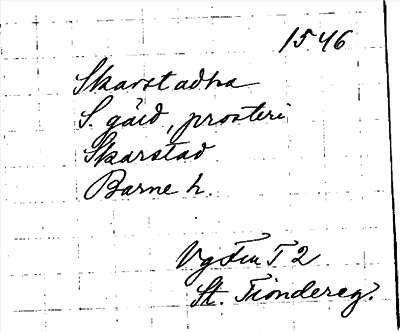 1546
Skarstadha
S. gård, prosteri
Skarstad
Barne h.
Vg Fru T 2
St. Tiondereg.